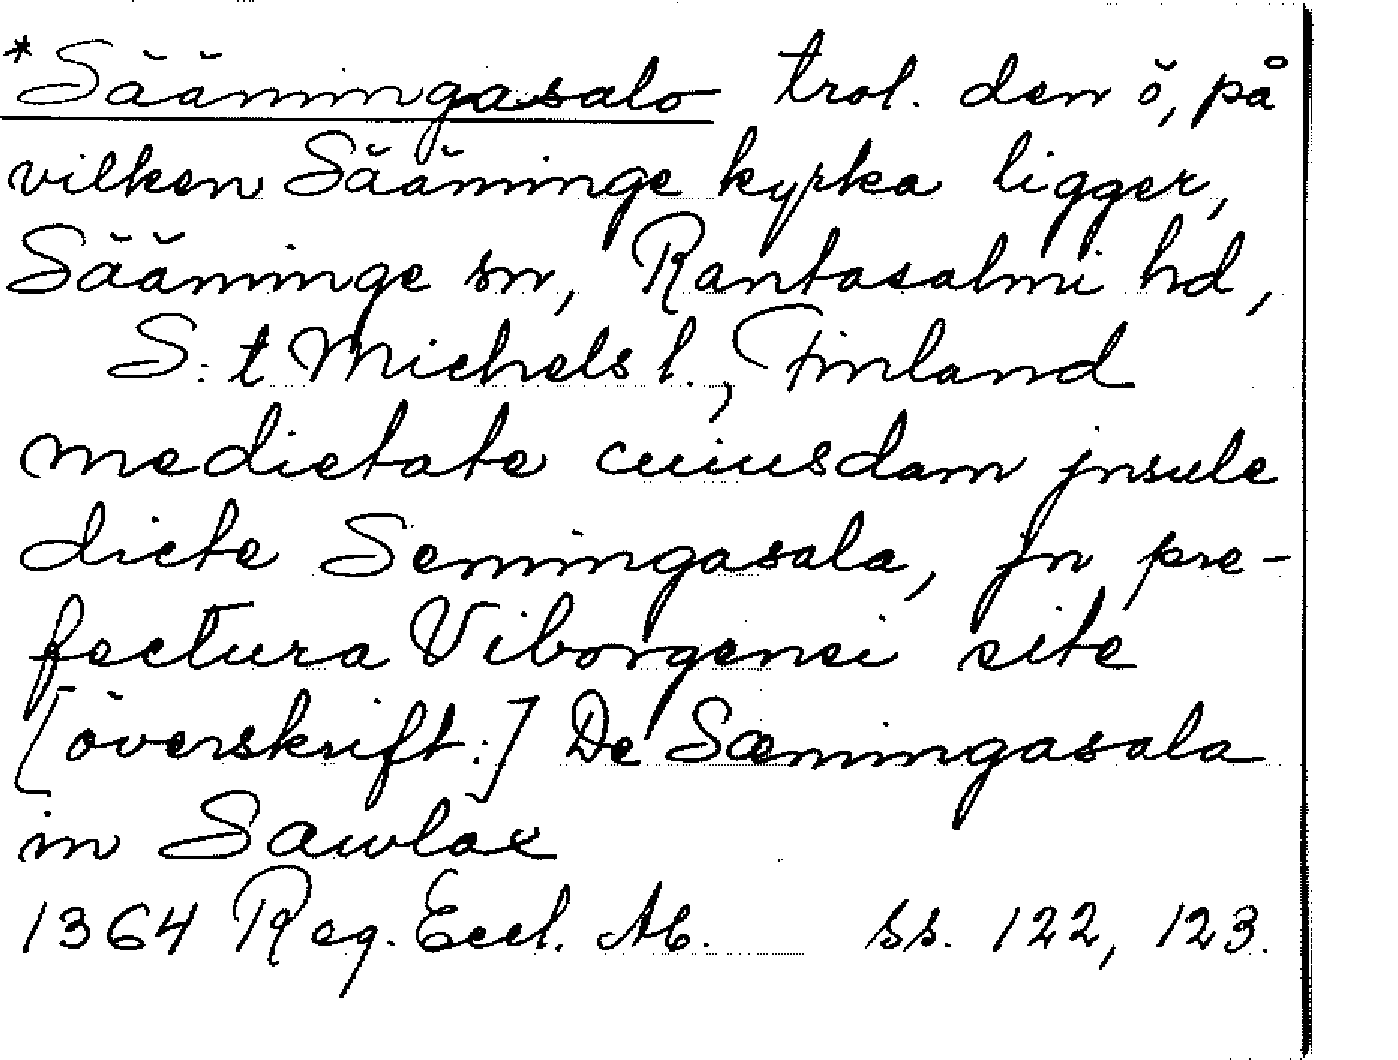 *Sääningasalo trol. den ö, på
vilken Sääminge kyrka ligger,
Sääminge sn, Rantasalmi hd,
S:t Michels l., Finland
medietate cuiusdam jnsule
dicte Semingasala, jn pre-
fectura Viborgensi site
[överskrift:] De Sæmingasala
in Sawlax
1364 Reg. Eccl. Ab. ss. 122, 123.